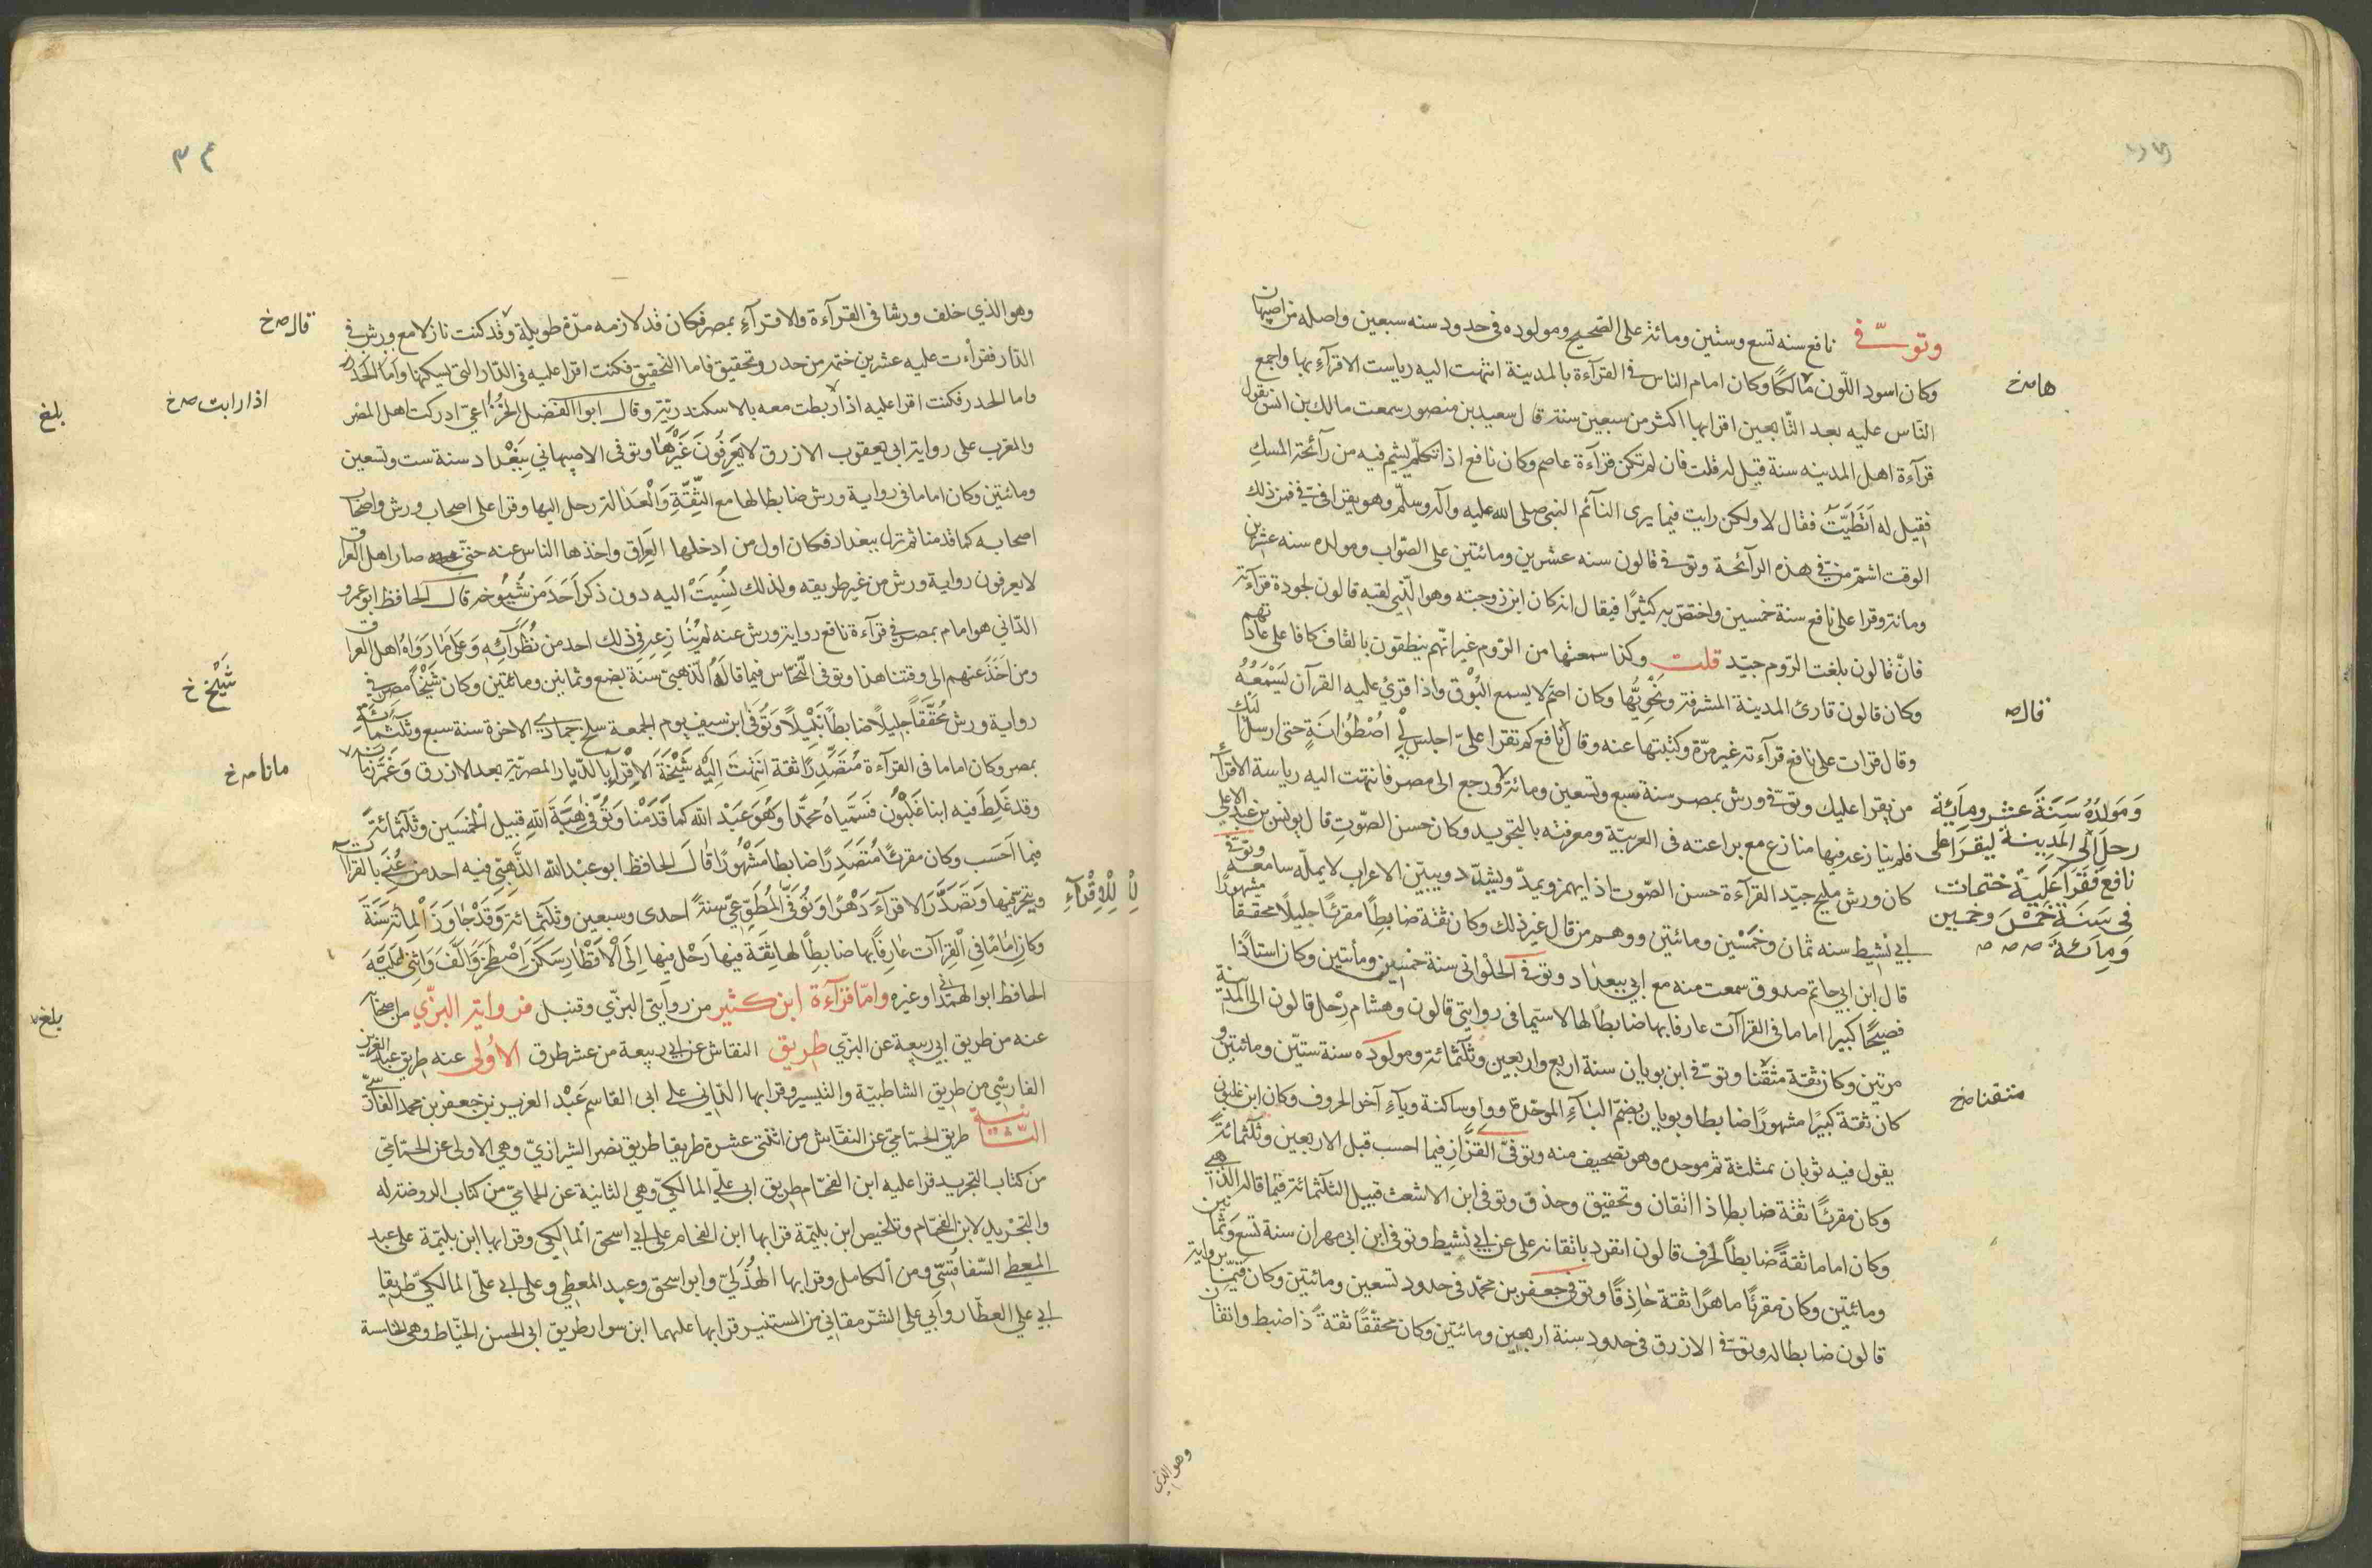 وتوفّي نافع سنه تسع وستّين ومائة على الصّحيح ومولوده فى حدود سنه سبعين واصله من اصبهان
وكان اسود اللّون مالكًا وكان امام الناس فى القرآءة بالمدينة انتهت اليه رياست الاقرآء بها واجمع
هاص خ
النّاس عليه بعد التّابعين اقرا بها اكثر من سبعين سنة قال سعيد بن منصور سمعت مالك بن انس يقول
قرآءة اهل المدينه سنة قيل له قلت فان لم تكن قرآءة عاصم وكان نافع اذا تكلّم يشم فيه من رآئحة المسك
فقيل له اتطيّب فقال لا ولكن رايت فيما يرى النآئم النبى صلى الله عليه وآله وسلّم وهو يقرا فى فىّ فمن ذلك
الوقت اشمّ من فىّ هذه الرآئحة وتوفى قالون سنه عشرين ومائتين على الصّواب ومولده سنه عشرين
ومائة وقرا على نافع سنة خمسين واختصّ به كثيرًا فيقال انه كان ابن زوجته وهو الّذي لقبه قالون لجودة قرآءته
فانّ قالون بلغت الرّوم جيّد قلت وكذا سمعتها من الرّوم غير انّهم ينطقون بالقاف كافا على عادتهم
وكان قالون قارئ المدينة المشرفة ونحويّها وكان اصمّ لا يسمع البوق واذا قرئ عليه القرآن يسمعه
قال ص
وقال قرات على نافع قرآءته غير مرّة وكتبتها عنه وقال نافع كم تقرا علىّ اجلس الى اصطوانة حتى ارسل اليك
من يقرا عليك وتوفّى ورش بمصر سنة سبع وتسعين ومائة ورجع الى مصر فانتهت اليه رياسة الاقرآء
ومولده سنة عشر ومائة
رحل الى المدينة ليقرا على
نافع فقرا عليه ختمات
فى سنة خمس وخمسين
ومائة ص ص ص
فلم ينازعه فيها منازع مع براعته فى العربيّة ومعرفته بالتجويد وكان حسن الصّوت قال يونس بن عبد الاعلى
كان ورش مليح جيّد القرآءة حسن الصّوت اذا يهمز ويمدّ ويشدّد ويبيّن الاعراب لا يملّه سامعه وتوفّى
ابى نشيط سنه ثمان وخمسين ومائتين ووهم من قال غير ذلك وكان ثقة ضابطًا مقرئًا جليلًا محقّقًا مشهورًا
قال ابن ابى حاتم صدوق سمعت منه مع ابى ببغداد وتوفى الحلوانى سنة خمسين ومأتين وكان استاذا
فصيحًا كبيرا اماما فى القراآت عارفا بها ضابطًا لها لا سيّما فى روايتى قالون وهشام رحل قالون الى المدينة
مرتين وكان ثقة متقنا وتوفى ابن بويان سنة اربع واربعين وثلثمائة ومولوده سنة ستّين ومائتين و
متقنا ص خ
كان ثقة كبيرًا مشهورًا ضابطا وبويان بضمّ البآء الموحّدة وواو ساكنة ويآء آخر الحروف وكان ابن غلبون
يقول فيه ثوبان بمثلثة ثم موحدة وهو تصحيف منه وتوفّى القزّاز فيما احسب قبل الاربعين وثلثمائة
وكان مقرئًا ثقة ضابطا ذا اتقان وتحقيق وحذق وتوفى ابن الاشعث قبيل الثلثمائة فيما قاله الذّهبى
وكان اماما ثقةً ضابطاً لحرف قالون انفرد باتقانه على عن ابى نشيط وتوفى ابن ابى مهران سنة تسع وثمانين
ومائتين وكان مقرئًا ماهرًا ثقة حاذقًا وتوفى جعفر بن محمّد فى حدود تسعين ومائتين وكان قيّمًا برواية
قالون ضابطا له وتوفّى الازرق فى حدود سنة اربعين ومائتين وكان محقّقًا ثقةً ذا ضبط واتقان
وهو الذي
٣٤
وهو الذي خلف ورشا فى القرآءة والاقرآء بمصر فكان قد لازمه مدّة طويلة وقد كنت نازلا مع ورش فى
قال ص خ
الدّار فقرأت عليه عشرين ختمة من حدر وتحقيق فاما التّحقيق فكنت اقرا عليه فى الدّار التى يسكنها واما الحدر
واما الحدر فكنت اقرا عليه اذا ربطت معه بالاسكندريّة وقال ابوا الفضل الخزاعىّ ادركت اهل المصر
اذا رابت ص خ
بلغ
والمغرب على رواية ابى يعقوب الازرق لا يعرفون غيرها وتوفى الاصبهاني ببغداد سنة ست وتسعين
ومائتين وكان اماما فى رواية ورش ضابطا لها مع الثّقة والعدالة رحل اليها وقرا على اصحاب ورش واصحاب
اصحابه كما قدمنا ثم نزل ببغداد فكان اول من ادخلها العراق واخذها الناس عنه حتى صار اهل العراق
لا يعرفون رواية ورش من غير طريقه ولذلك نسبت اليه دون ذكر احد من شيوخه قال الحافظ ابو عمرو
الدّاني هو امام بمصر فى قرآءة نافع رواية ورش عنه لم ينازعه فى ذلك احد من نظرآئه وعلى ما رواه اهل العراق
ومن اخذ عنهم الى وقتنا هذا وتوفى النّحاس فيما قاله الذهبى سنة بضع وثمانين ومائتين وكان شيخا مصر فى
شيخ خ
رواية ورش محقّقاً جليلاً ضابطاً نبيلاً وتوفى ابن سيف يوم الجمعة سلخ جمادى الاخرة سنة سبع وثلثمائة
بمصر وكان اماما فى القرآءة متصدّرًا ثقة انتهت اليه شيخة الاقرآء بالدّيار المصريّة بعد الازرق وعمّر زمانا
مانا ص خ
وقد غلط فيه ابنا غلبون فسمّياه محمّدا وهو عبد الله كما قدّمنا وتوفى هبة الله قبيل الخمسين وثلثمائة
فيما احسب وكان مقرئًا متصدّرًا ضابطا مشهورًا قال الحافظ ابو عبد الله الذّهبى فيه احد من عنى بالقراآت
وتبحّر فيها وتصدّر الاقرآء دهرًا وتوفّى المطّوّعىّ سنة احدى وسبعين وثلثمائة وقد جاوز المائة سنة
للاقرآء
وكان امامًا فى القراآت عارفاً بها ضابطاً لها ثقة فيها رحل فيها الى الاقطار سكن اصطخر والّف واثنى عليه
الحافظ ابو العلاء الهمدانى وغيره وامّا قرآءة ابن كثير من روايتى البزّي وقنبل فرواية البزّي من اصحابه
عنه من طريق ابى ربيعة عن البزّي طريق النقاش عن ابى ربيعة من عشر طرق الاولى عنه طريق عبد العزيز
بلغ
الفارسى من طريق الشاطبيّة والتيسير وقرا بها الدّانى على ابى القاسم عبد العزيز بن جعفر بن محمد الفارسىّ
الثّانية طريق الحمّامىّ عن النقّاش من اثنتى عشرة طريقا طريق نصر الشيرازىّ وهى الاولى عن الحمّامىّ
من كتاب التجريد قرا عليه ابن الفحّام طريق ابى علىّ المالكىّ وهى الثانية عن الحمامىّ من كتاب الروضة له
والتجريد لابن الفحّام وتلخيص ابن بليمة قرا بها ابن الفحام على ابى اسحق المالكى وقرا بها ابن بليمة على عبد
المعطى السّفاقسىّ ومن الكامل وقرا بها الهذلىّ وابو اسحق وعبد المعطى وعلى ابى علىّ المالكىّ طريقا
ابى على العطّار وابى على الشرمقانى من المستنير قرا بها عليهما ابن سوار طريق ابى الحسن الخيّاط وهى الخامسة